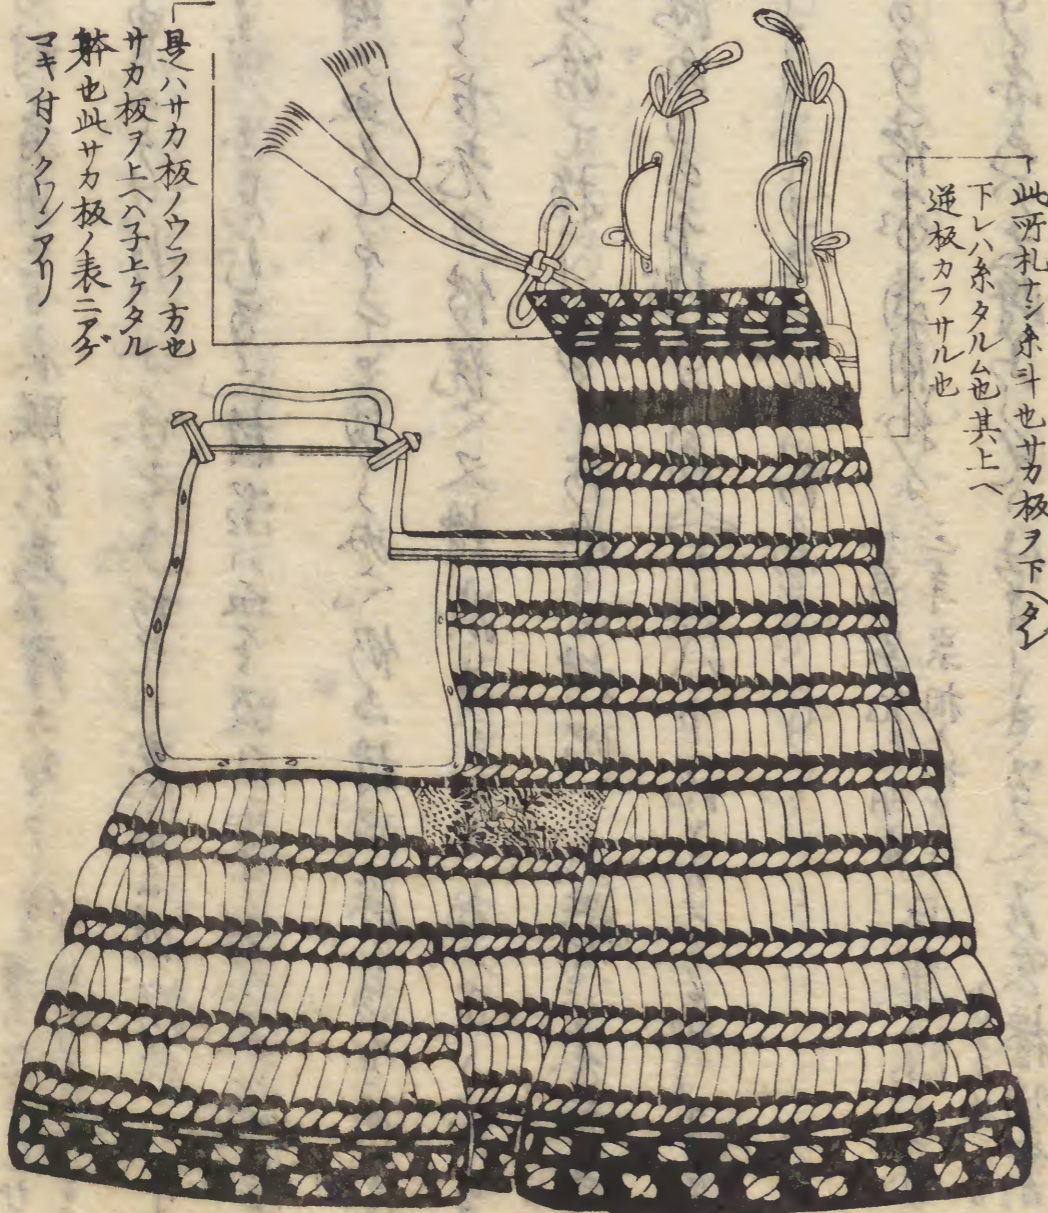 此所札ナシ糸斗也サカ板ヲ下ヘタシ
下レハ糸タルム也其上ヘ
逆板カフサル也
是ハサカ板ノウラノ方也
サカ板ヲ上ヘハ子上ケタル
躰也此サカ板ノ表ニアゲ
マキ付ノクワンアリ